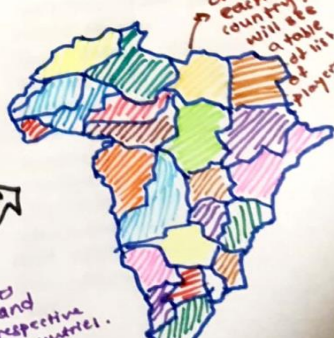 each
country,
will see
a table
of list
of
players
and
respective
countries.